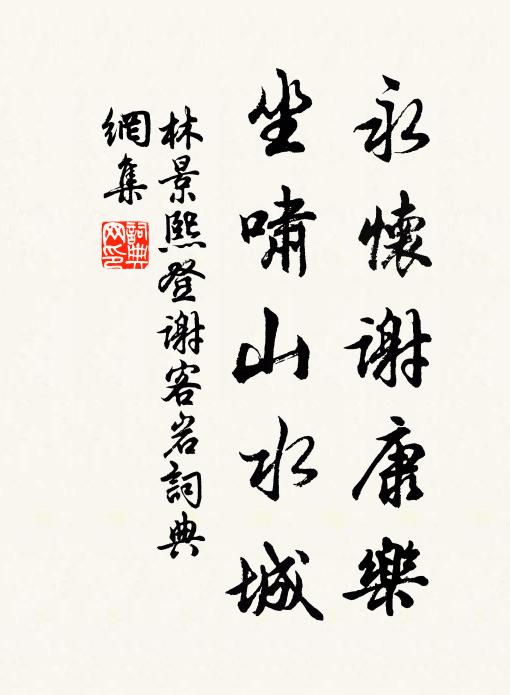 永懷謝康樂
坐嘯山水城
林景熙登谢客岩詞典
網集
詞典网印